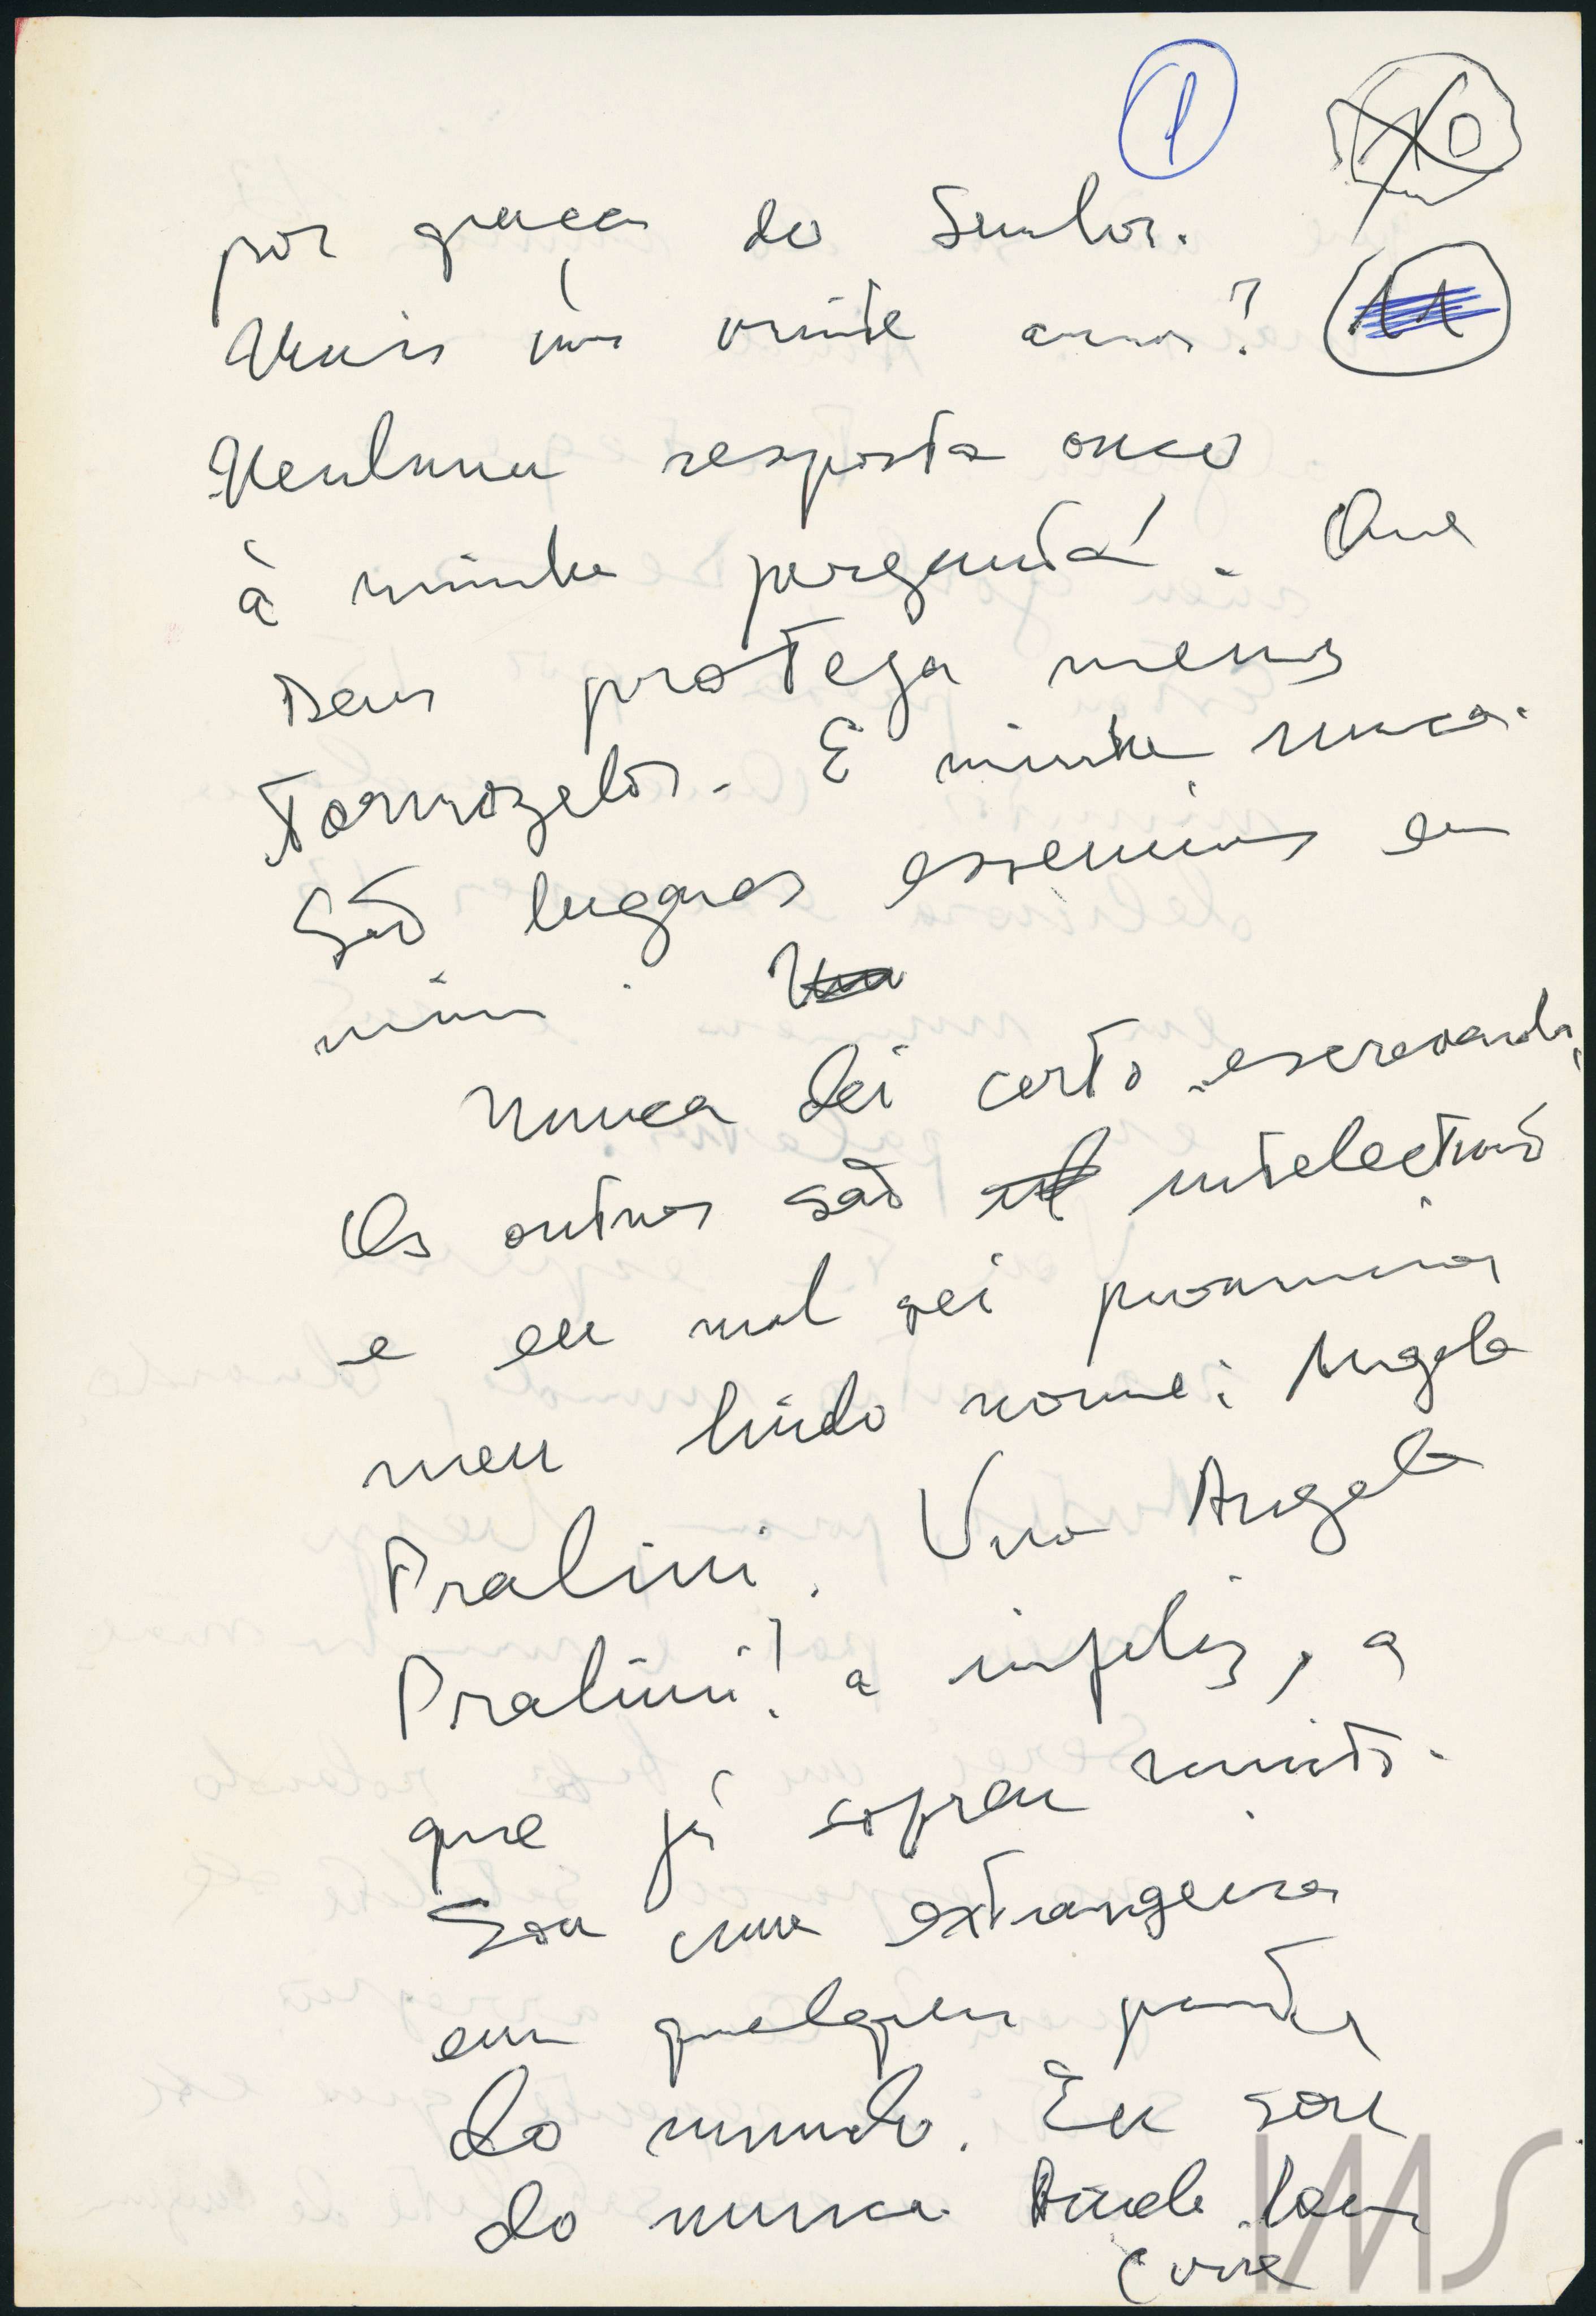 1
10
11
por graça do Senhor.
Mais uns vinte anos?
Nenhuma resposta ouço
à minha pergunta. Que
Deus proteja meus
tornozelos. E minha nuca.
São lugares essenciais em
mim.
Nunca dei certo escrevendo.
Os outros são intelectuais
e eu mal sei pronunciar
meu lindo nome: Angela
Pralini. Uma Angela
Pralini! a infeliz, a
que já sofreu muito.
Sou uma extrangeira
em qualquer parte
do mundo. Eu sou
do nunca.
IMS